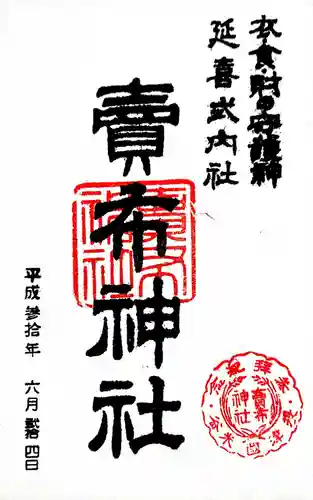 衣食財の守護神
延喜式内社
賣布神社
平成参拾年 六月貮拾四日
賣布神社
賣布
神社